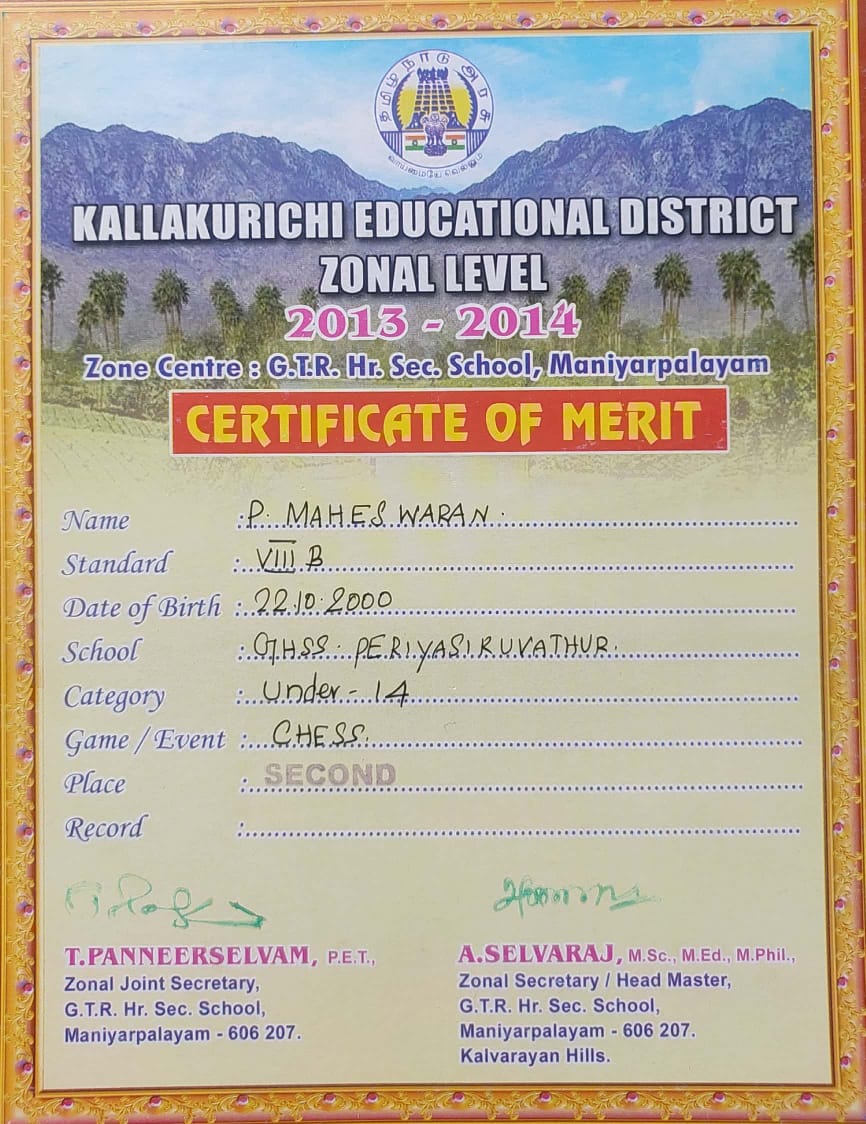 தமிழ்நாடு அரசு
வாய்மையே வெல்லும்
KALLAKURICHI EDUCATIONAL DISTRICT
ZONAL LEVEL
2013 - 2014
Zone Centre : G.T.R. Hr. Sec. School, Maniyarpalayam
CERTIFICATE OF MERIT
Name : P. MAHESWARAN.
Standard : VIII B
Date of Birth : 22.10.2000
School : GHSS. PERIYASIRUVATHUR.
Category : Under - 14
Game / Event : CHESS.
Place : SECOND
Record :
T.PANNEERSELVAM, P.E.T.,
Zonal Joint Secretary,
G.T.R. Hr. Sec. School,
Maniyarpalayam - 606 207.
A.SELVARAJ, M.Sc., M.Ed., M.Phil.,
Zonal Secretary / Head Master,
G.T.R. Hr. Sec. School,
Maniyarpalayam - 606 207.
Kalvarayan Hills.